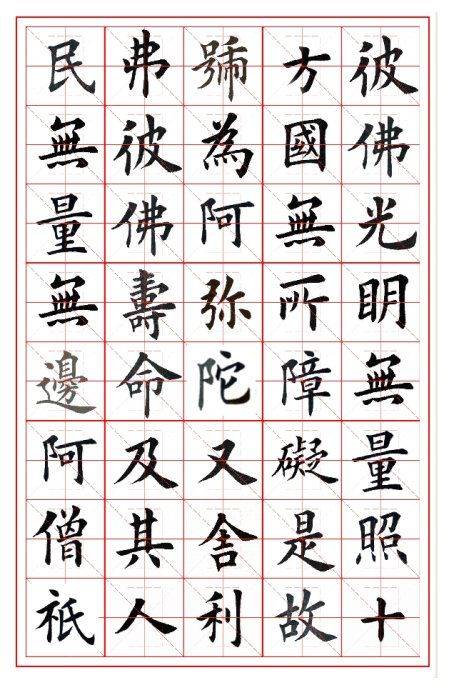 彼佛光明無量照十
方國無所障礙是故
號為阿弥陀又舍利
弗彼佛壽命及其人
民無量無邊阿僧祇